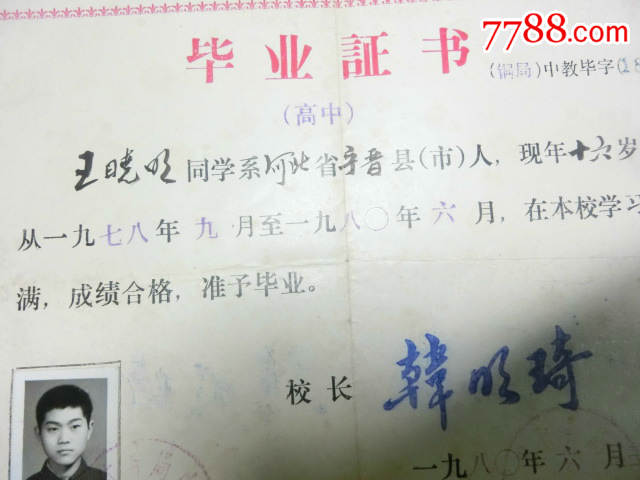 7788.com
毕业証书
(铜局)中教毕字(18
(高中)
王晓明同学系河北省宁晋县(市)人，现年十六岁
从一九七八年九月至一九八〇年六月，在本校学习
满，成绩合格，准予毕业。
校长 韓明琦
一九八〇年六月
局